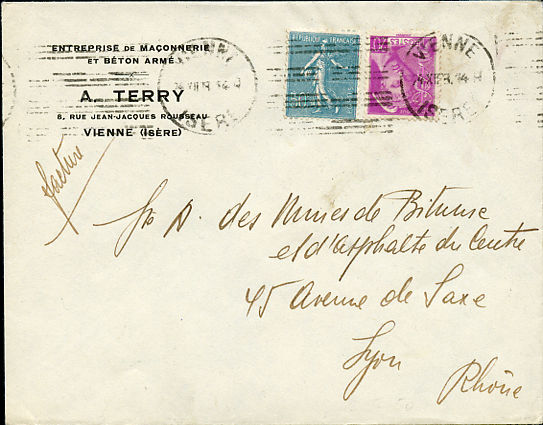 ENTREPRISE DE MAÇONNERIE
ET BÉTON ARMÉ
A. TERRY
8, RUE JEAN-JACQUES ROUSSEAU
VIENNE (ISÈRE)
RÉPUBLIQUE FRANÇAISE
VIENNE
ISÈRE
VIENNE
ISÈRE
facture
Sté A. des Mines de Bitume
et d'Asphalte du Centre
45 Avenue de Saxe
Lyon
Rhône